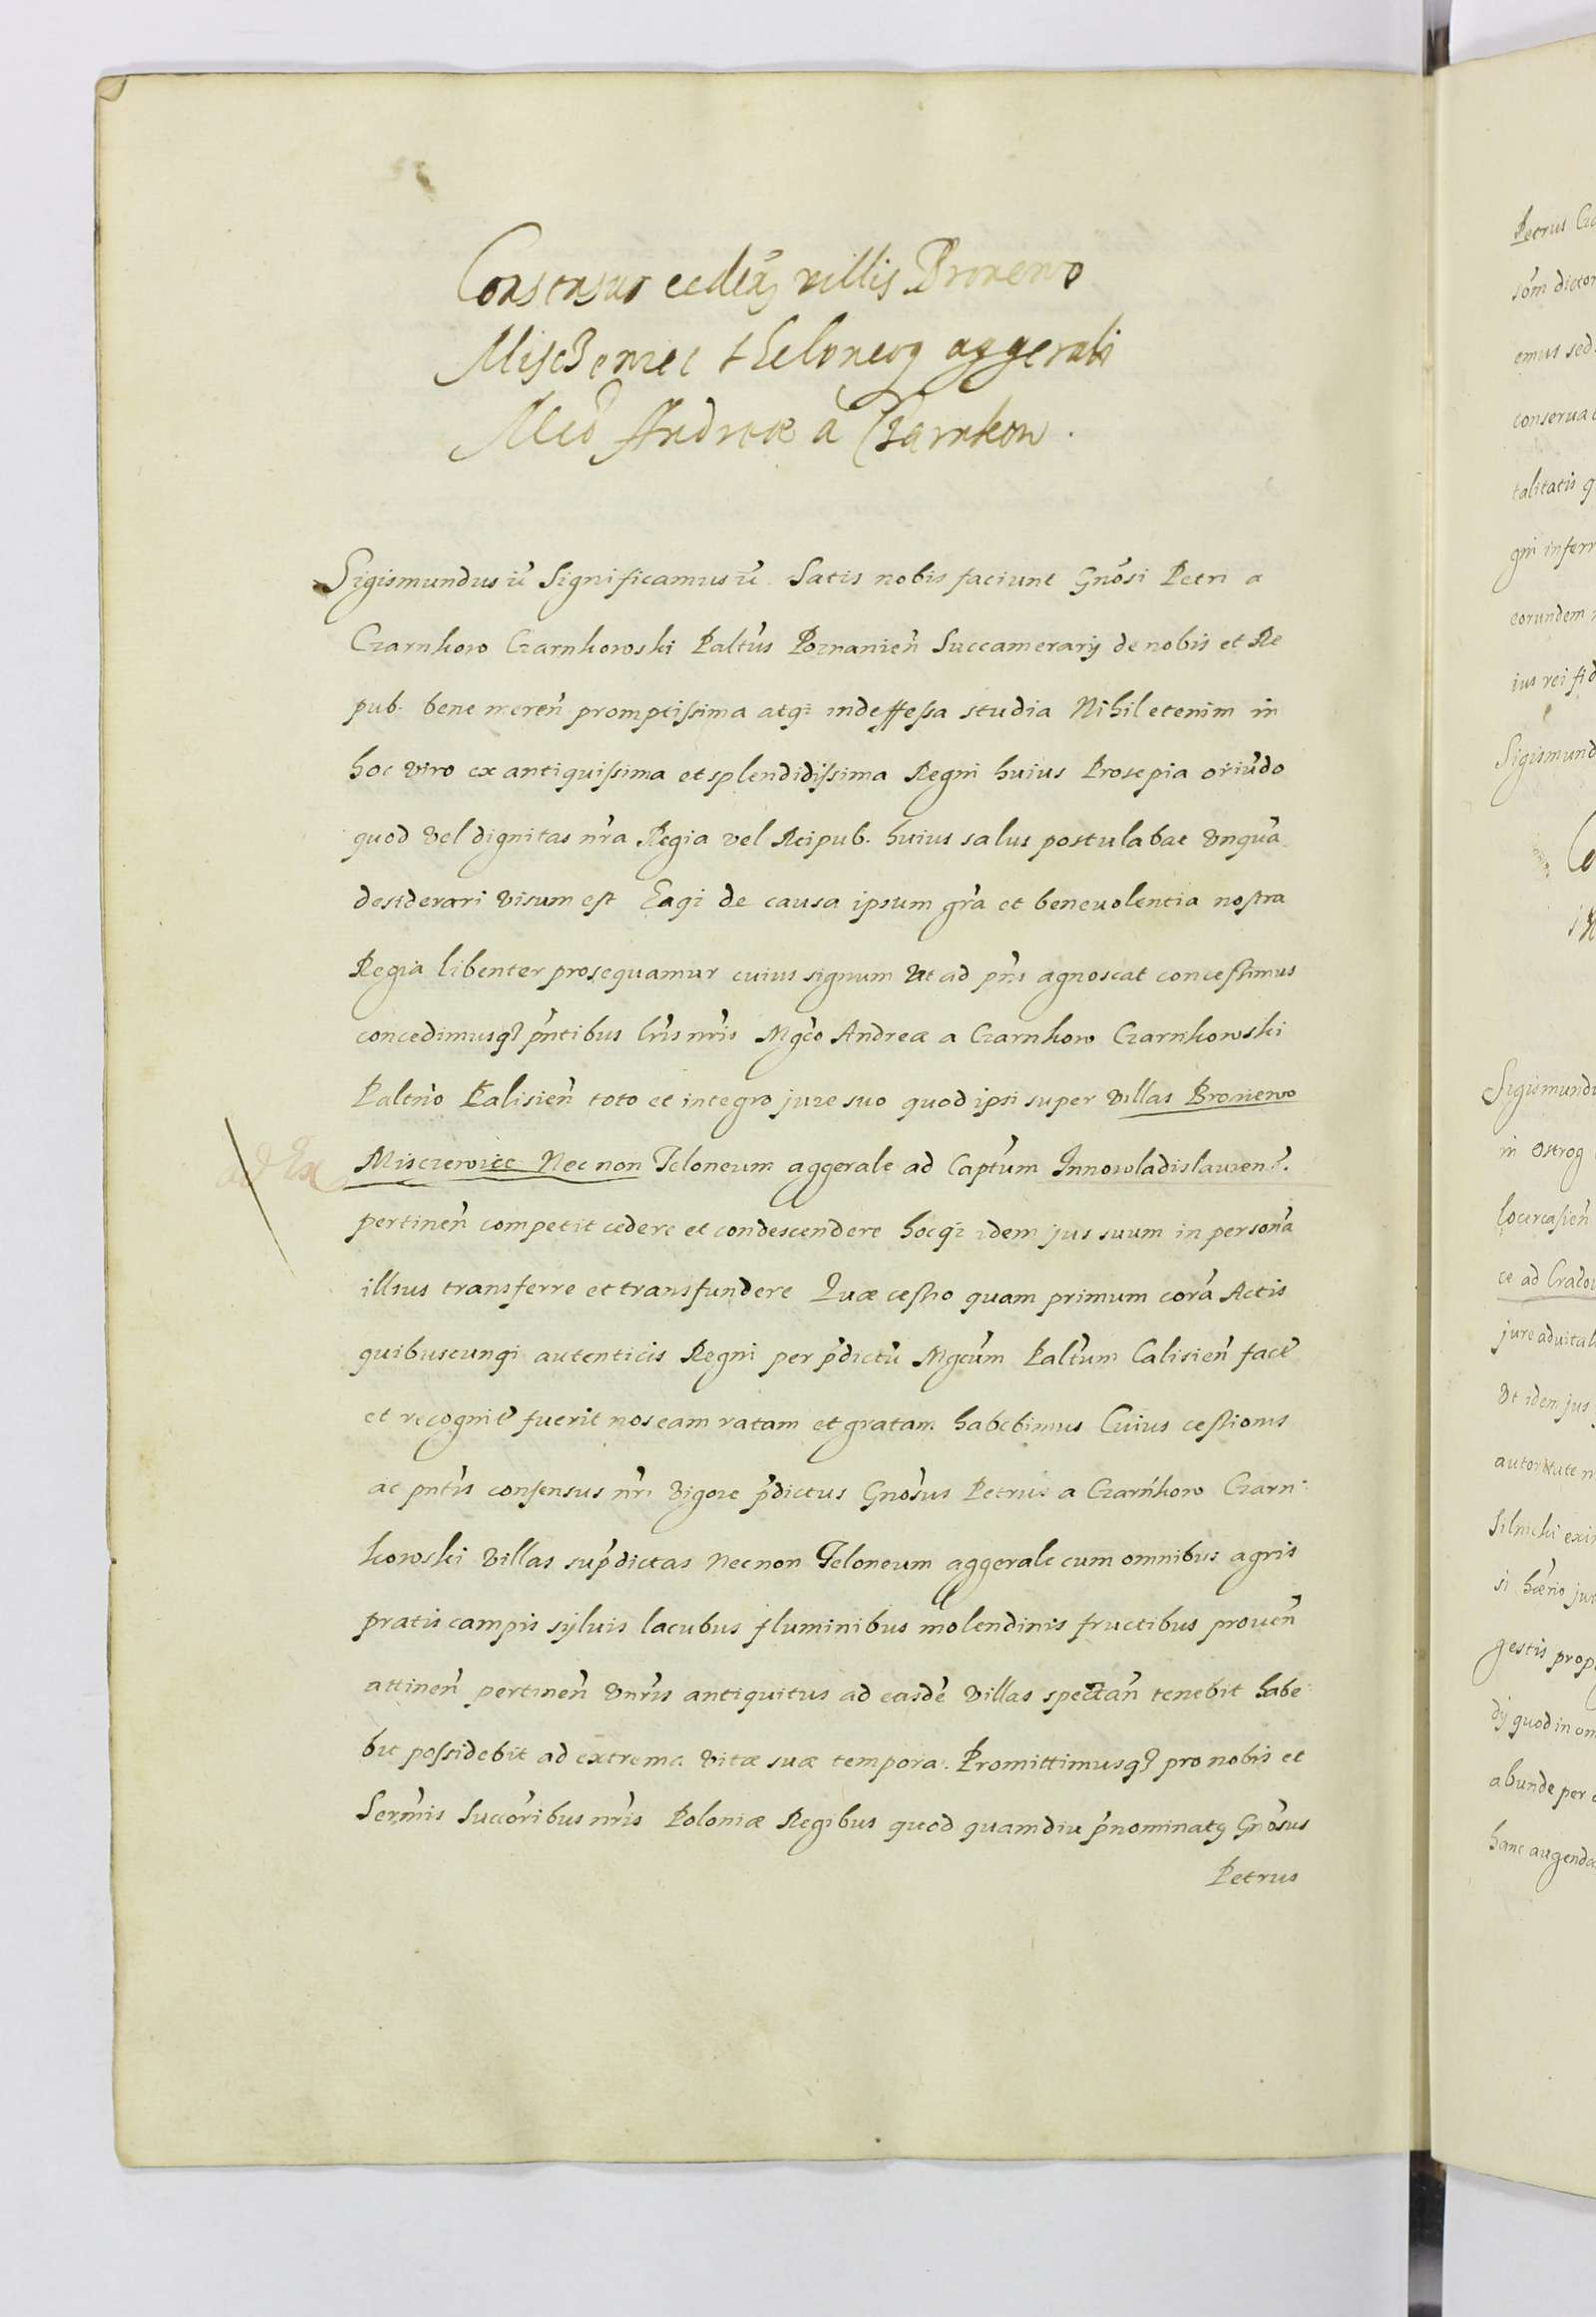 Consensus cedēd villis Broniewo
Misczewiec theloneoq aggerali
Mco Andreæ a Czarnkow.
Sigismundus ıc̄ Significamus ıc̄ Satis nobis faciunt Gnōsi Petri a
Czarnkow Czarnkowski Paltūs Poznanien̄ Succamerarij de nobis et Re
pub. bene meren̄ promptissima atq; indeffessa studia Nihil etenim in
hoc viro ex antiquissima et splendidissima Regni huius Prosepia oriūdo
quod vel dignitas nr̄a Regia vel Reipub. huius salus postulabat vnquā
desiderari visum est Eaq; de causa ipsum gr̄a et beneuolentia nostra
Regia libenter prosequamur cuius signum vt ad pn̄s agnoscat concessimus
concedimusq; pn̄tibus lr̄is nr̄is Mgc̄o Andreæ a Czarnkow Czarnkowski
Paltn̄o Kalisien̄ toto et integro jure suo quod ipsi super villas Broniewo
Misczewiec Nec non Teloneum aggerale ad Captūm Innowladislauien̄.
pertinen̄ competit cedere et condescendere hocq; idem jus suum in personā
illius transferre et transfundere Quæ cessio quam primum corā Actis
quibuscunq; autenticis Regni per p̄dictū Mgcūm Paltūm Calisien̄ facť
et recogniť fuerit nos eam ratam et gratam habebimus Cuius cessionis
ac pn̄tis consensus nr̄i vigore p̄dictus Gnōsus Petrus a Czarnkow Czarn:
kowski villas sup̄dictas Necnon Teloneum aggerale cum omnibus agris
pratis campis syluis lacubus fluminibus molendinis fructibus prouen̄
attinen̄ pertinen̄ vnr̄is antiquitus ad easdē villas spectan̄ tenebit habe:
bit possidebit ad extrema vitæ suæ tempora. Promittimusq; pro nobis et
Serm̄is Succōribus nr̄is Poloniæ Regibus quod quamdiu p̄nominatq Gnōsus
Petrus